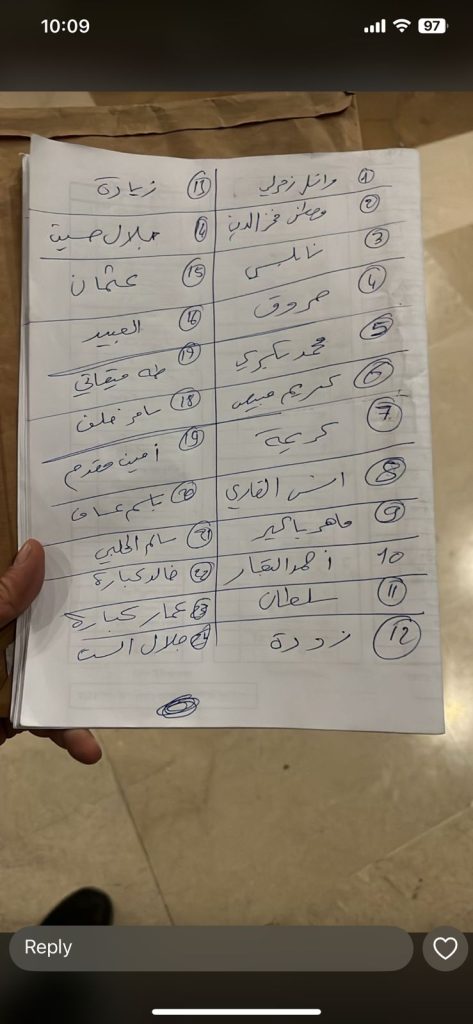 10:09
97
① وائل زمرلي
② مصطفى فخر الدين
③ نابلسي
④ مروق
⑤ محمد بكري
⑥ كريم مبيض
⑦ كريمة
⑧ انس القاري
⑨ ماهر باكير
10 أحمد القبار
⑪ سلطان
⑫ زودة
⑬ زيادة
⑭ جلال حسين
⑮ عثمان
⑯ العبيد
⑰ طه ميقاتي
⑱ سامر خلف
⑲ أمين مقدم
⑳ باسم عساف
㉑ سالم الحلبي
㉒ خالد كبارة
㉓ عمار كبارة
㉔ جلال الست
Reply